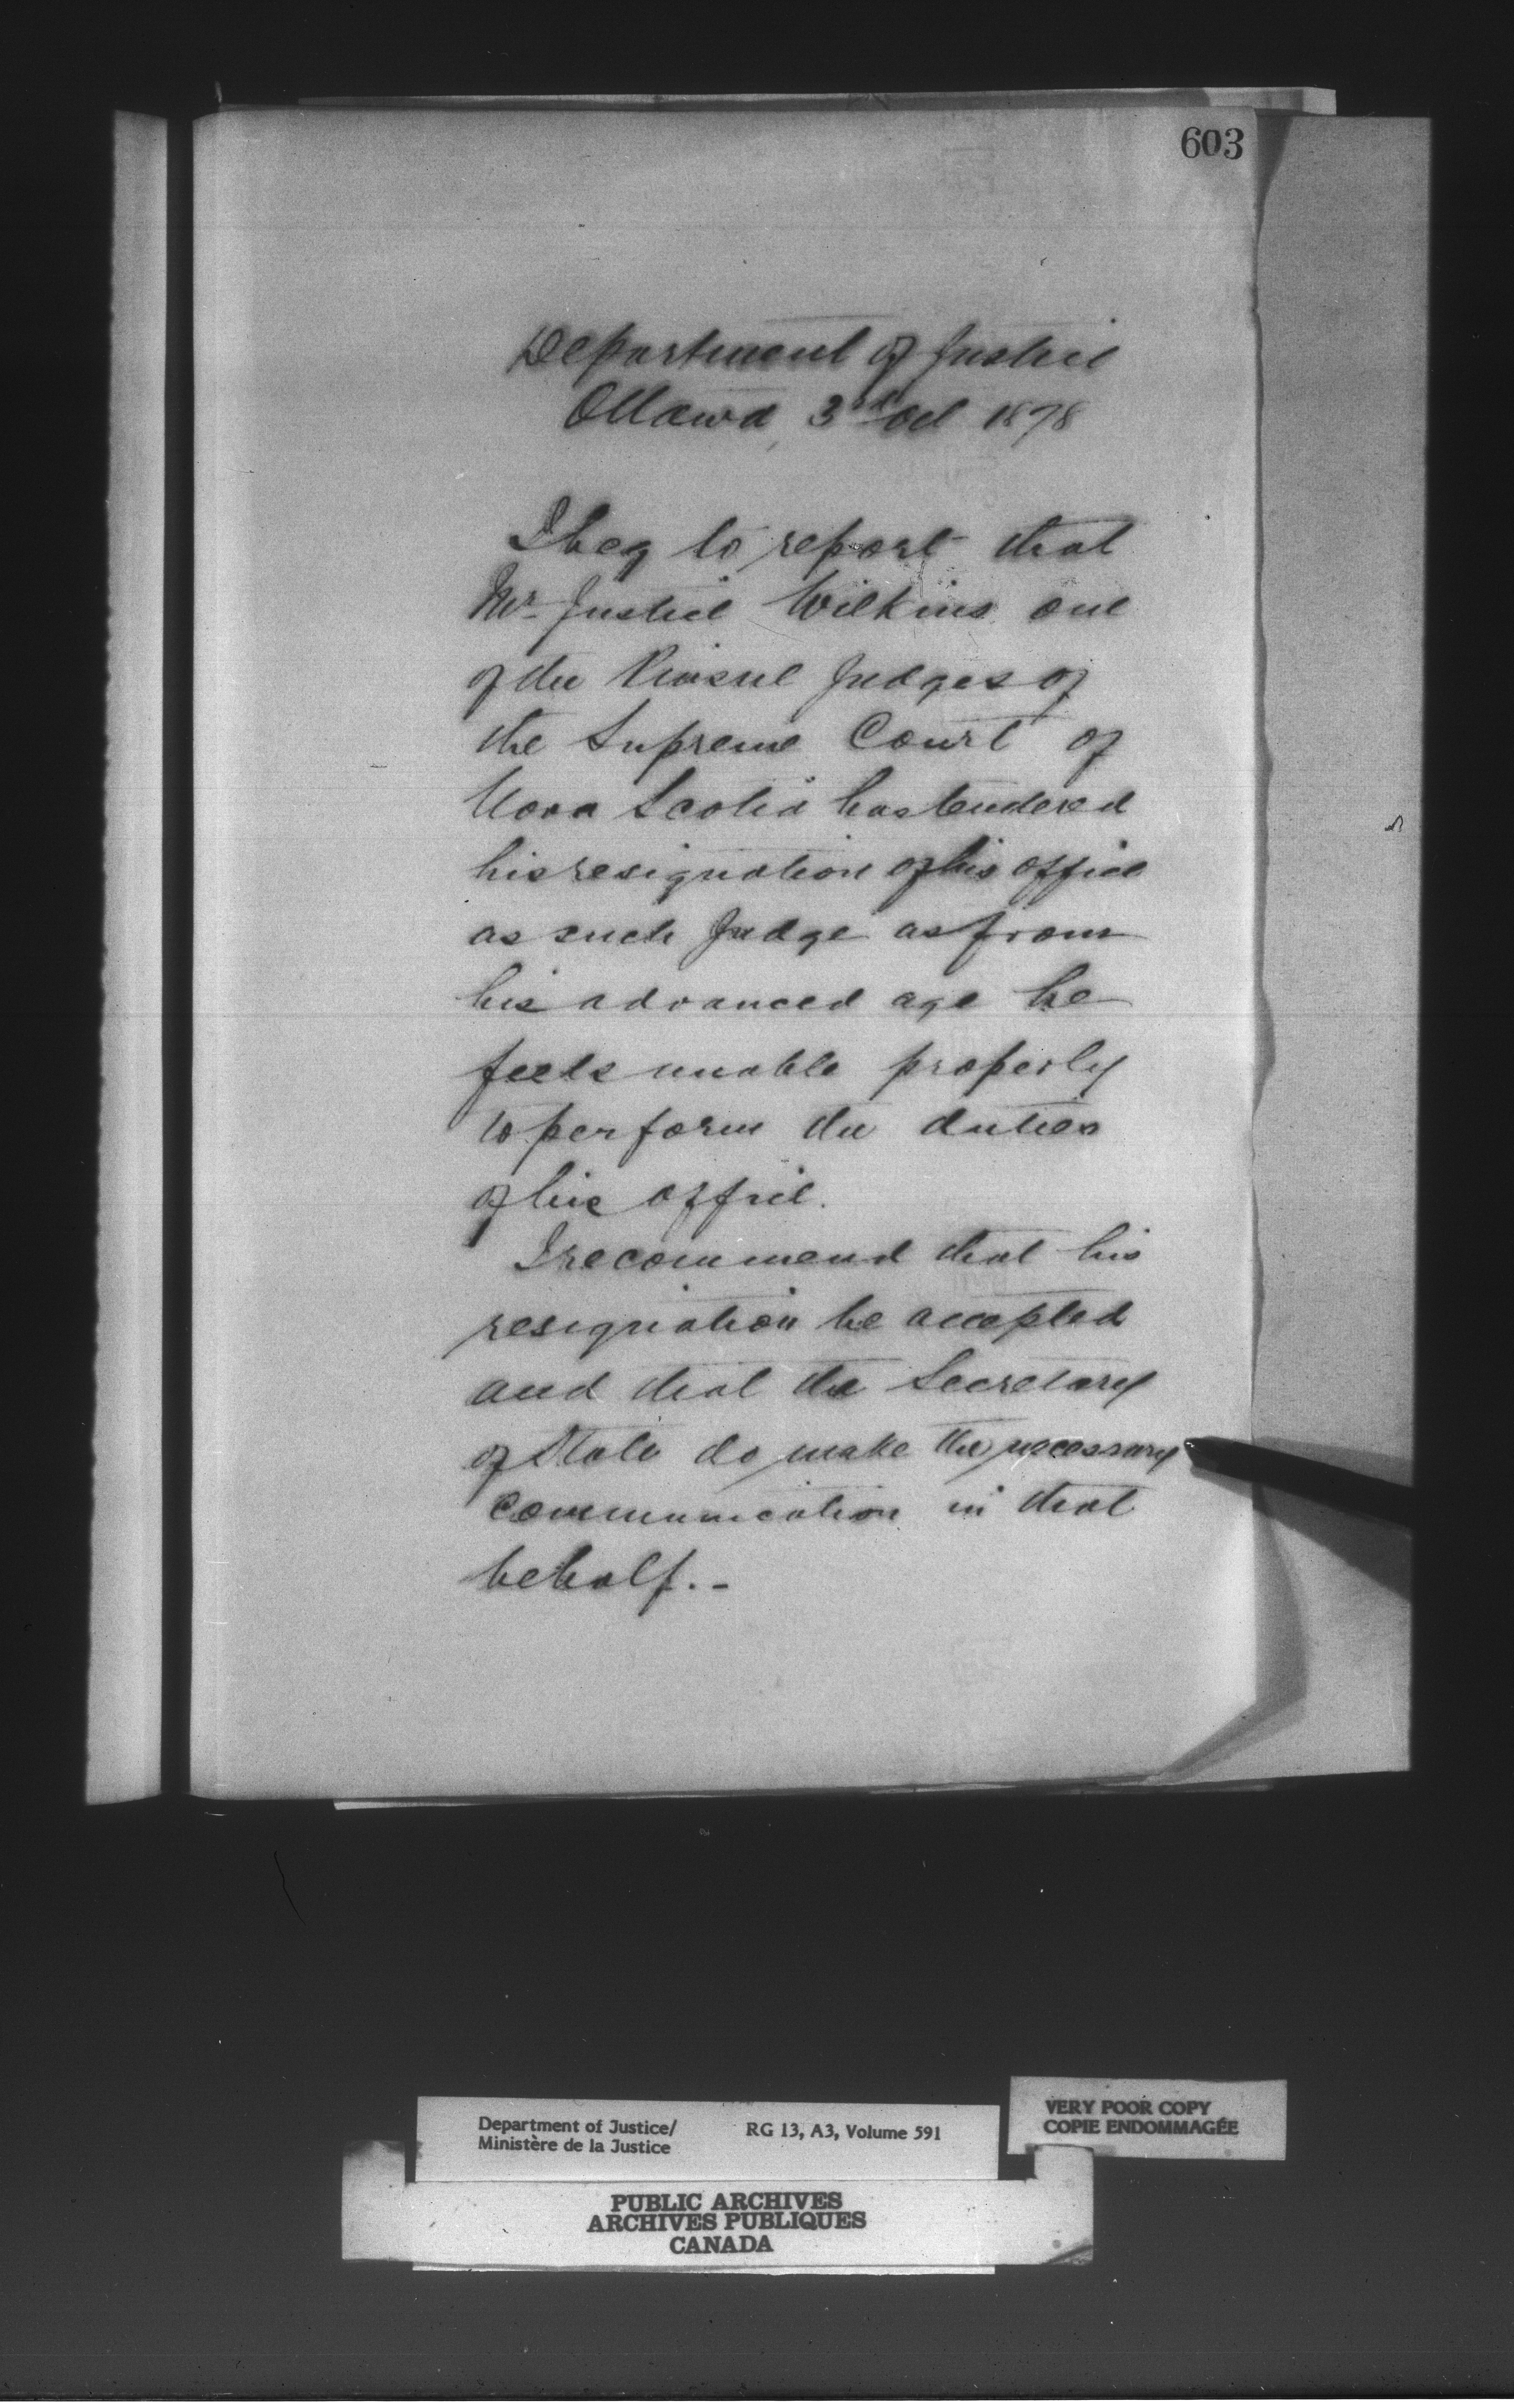 603
Department of Justice
Ottawa, 3rd Oct 1878
I beg to report that
Mr Justice Wilkins one
of the Puisne Judges of
the Supreme Court of
Nova Scotia has tendered
his resignation of his office
as such Judge as from
his advanced age he
feels unable properly
to perform the duties
of his office.
I recommend that his
resignation be accepted
and that the Secretary
of State do make the necessary
communication in that
behalf.-
Department of Justice/ RG 13, A3, Volume 591
Ministère de la Justice
VERY POOR COPY
COPIE ENDOMMAGÉE
PUBLIC ARCHIVES
ARCHIVES PUBLIQUES
CANADA